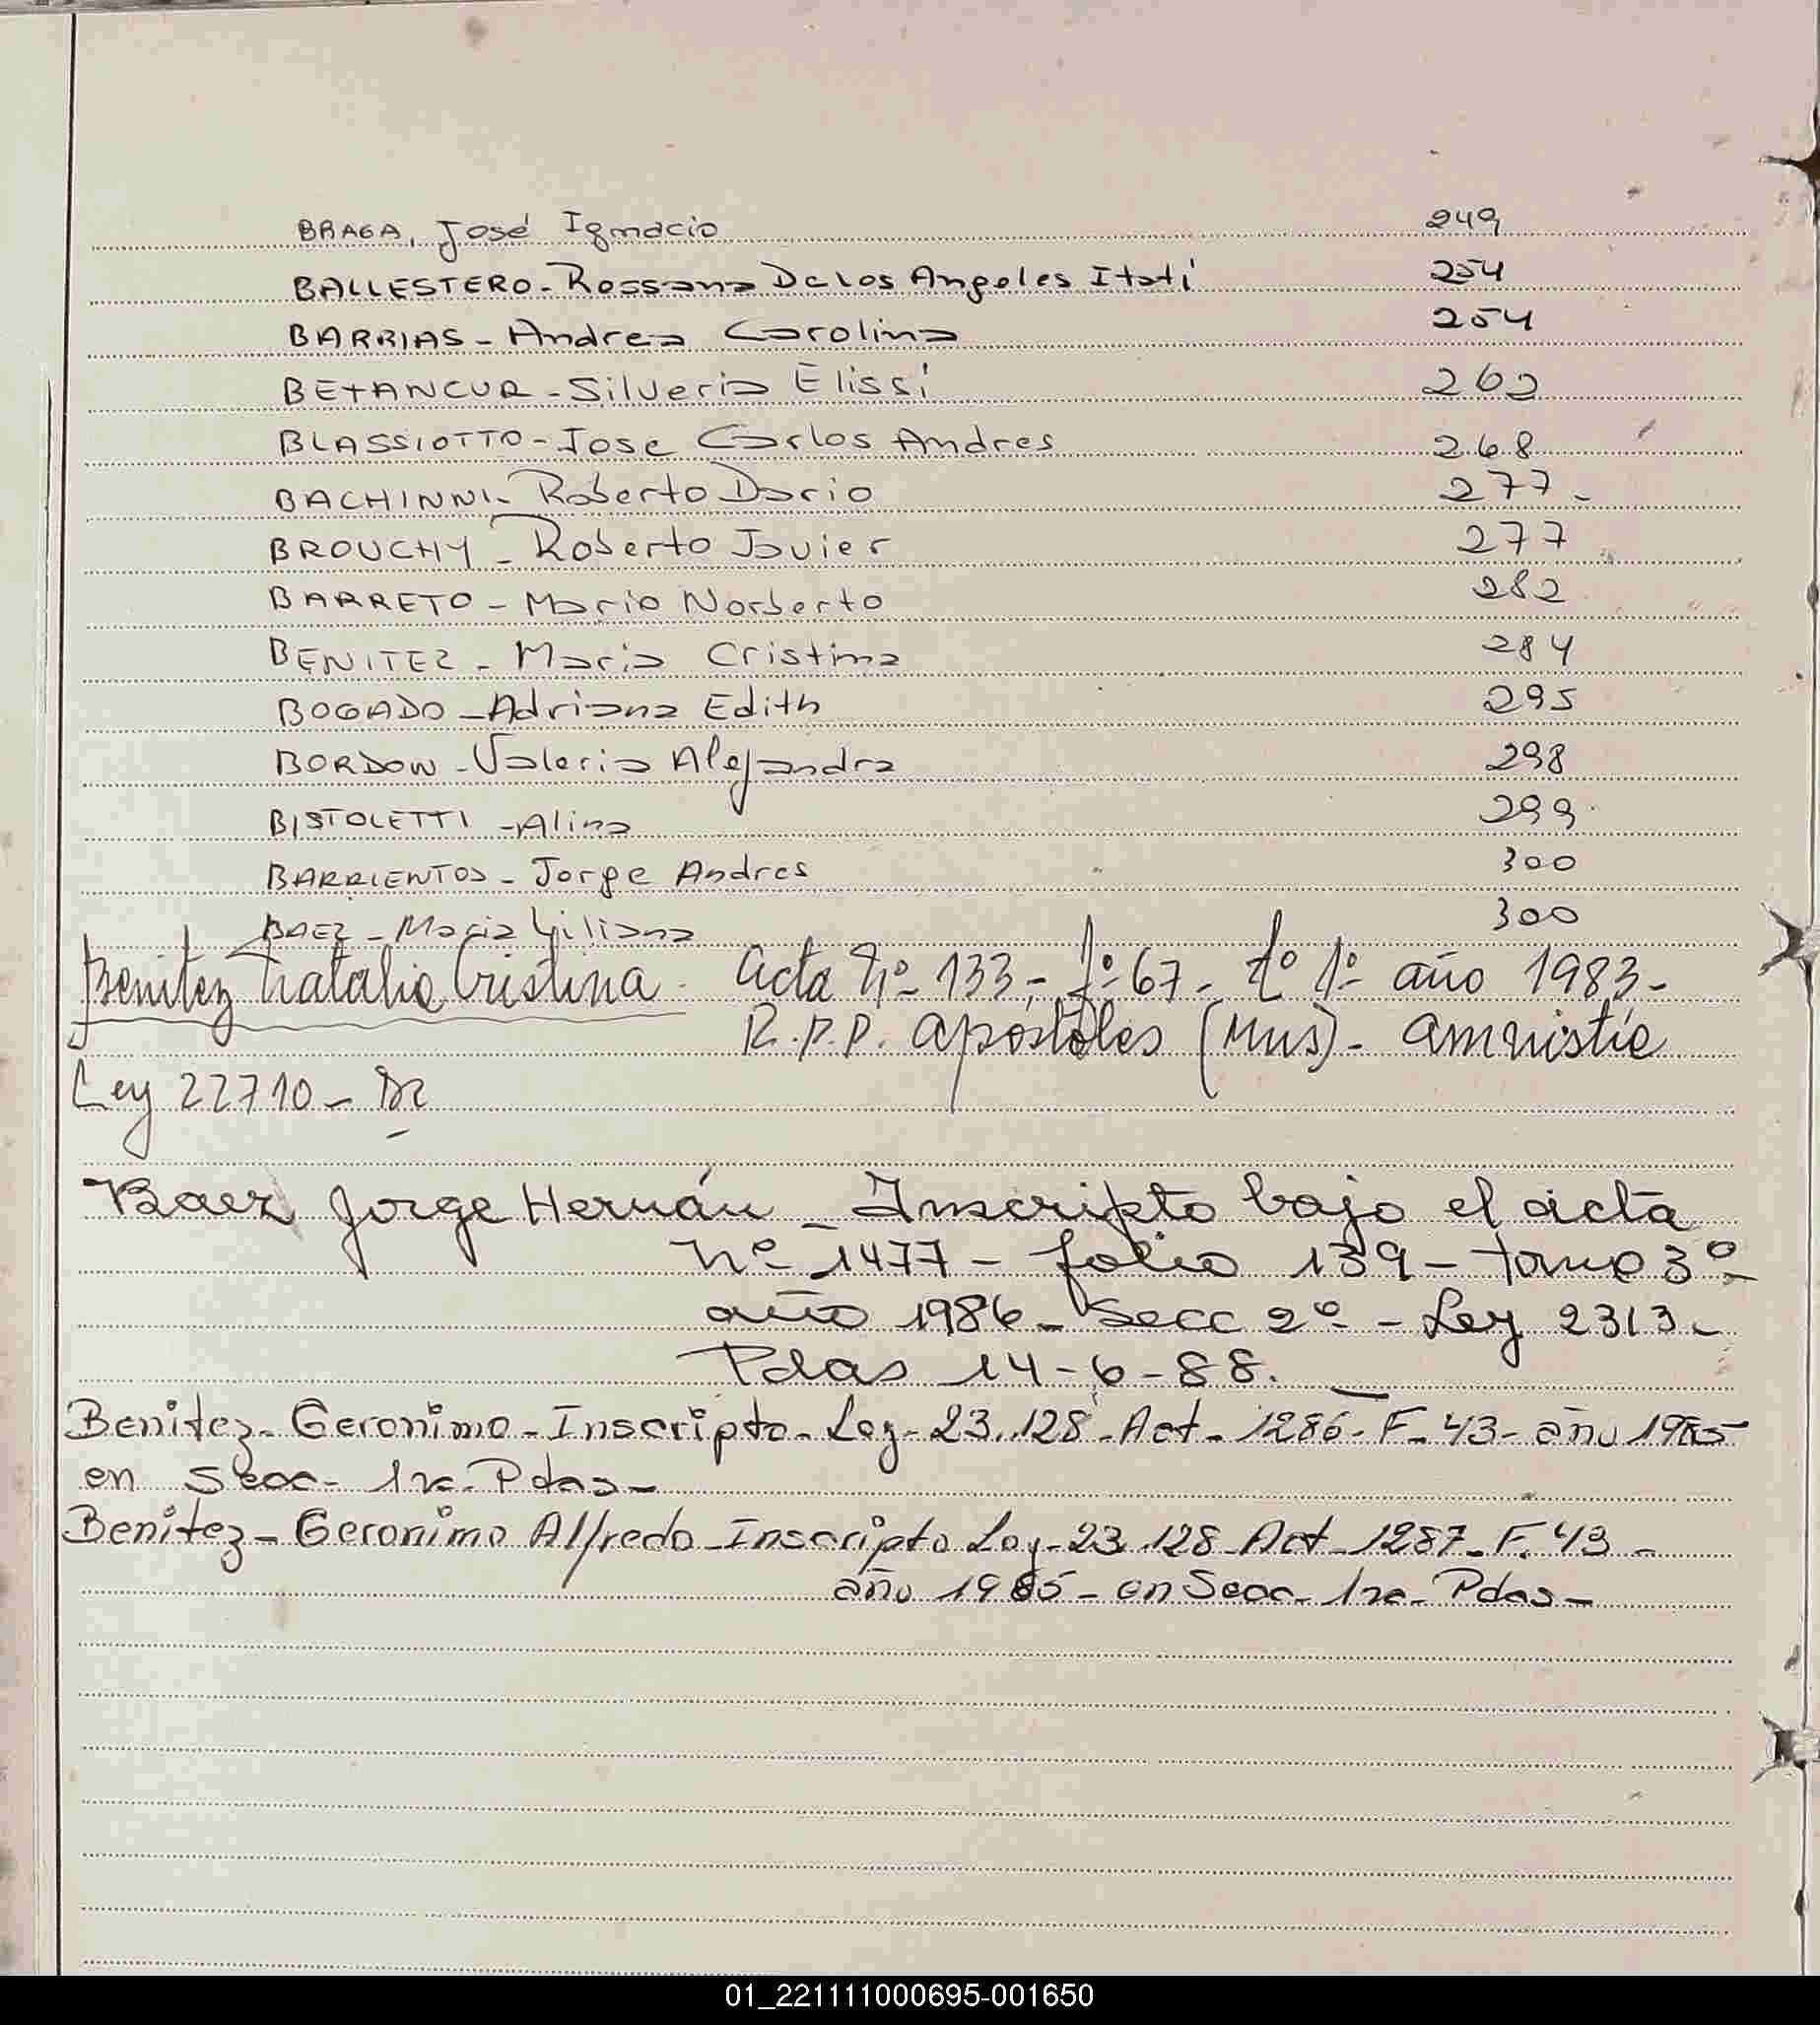 BRAGA, José Ignacio 249
BALLESTERO - Rossana De los Angeles Itatí 254
BARRIAS - Andrea Carolina 254
BETANCUR - Silveria Elissi 262
BLASSIOTTO - Jose Carlos Andres 268
BACHINNI - Roberto Dario 277 -
BROUCHY - Roberto Javier 277
BARRETO - Mario Norberto 282
BENITEZ - Maria Cristina 284
BOGADO - Adriana Edith 295
BORDON - Valeria Alejandra 298
BISTOLETTI - Alina 299
BARRIENTOS - Jorge Andres 300
BAEZ - Maria Liliana 300
Benitez Natalia Cristina - Acta Nº 133 - Fº 67 - Tº 1º año 1983 -
R.P.P. Apóstoles (Mns) - Amnistia
Ley 22710 -
Baez Jorge Hernán - Inscripto bajo el acta
Nº 1477 - folio 139 - tomo 3º
año 1986 - Secc 2º - Ley 2313 -
Pdas 14-6-88.
Benitez - Geronimo - Inscripto - Ley - 23.128 - Act - 1286 - F - 43 - año 1985
en Secc - 1ra - Pdas -
Benitez - Geronimo Alfredo - Inscripto Ley - 23.128 - Act - 1287 - F. 43 -
año 1985 - en Secc - 1ra - Pdas -
01_221111000695-001650